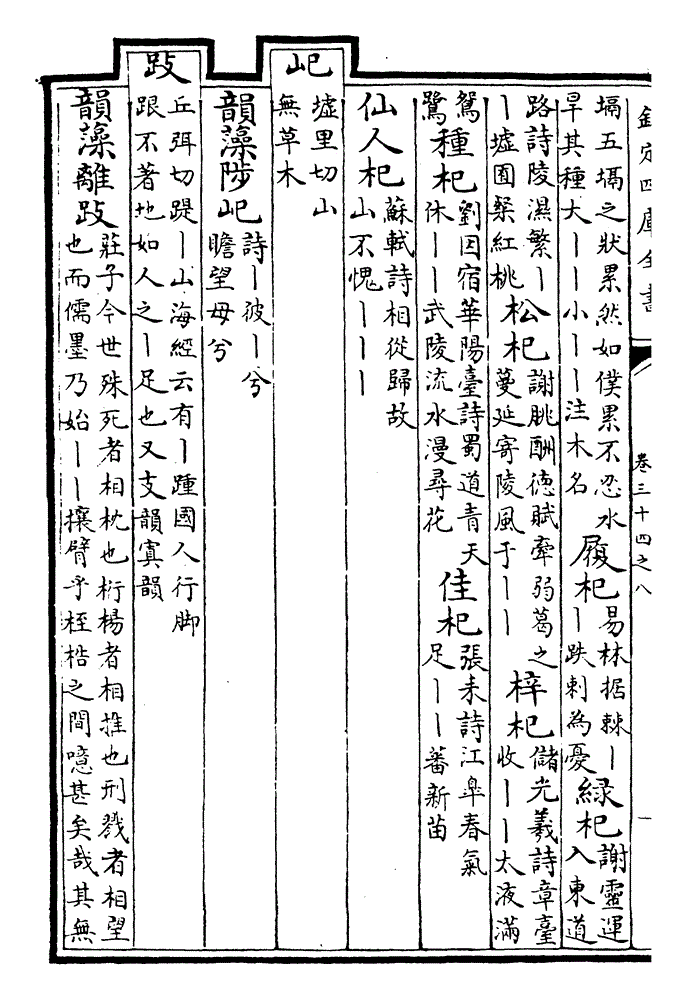 欽定四庫全書
卷三十四之八
塥五塥之狀累然如僕累不忍水
旱其種大丨丨小丨丨注木名
履杞
易林据棘丨
丨跌刺為憂
緑杞
謝靈運
入東道
路詩陵濕繁丨
丨墟囿粲紅桃
松杞
謝朓酬德賦牽弱葛之
蔓延寄陵風于丨丨
梓杞
儲光羲詩章臺
收丨丨太液滿
鴛
鷺
種杞
劉因宿華陽臺詩蜀道青天
休丨丨武陵流水漫尋花
佳杞
張耒詩江臯春氣
足丨丨蕃新苗
仙人杞
蘇軾詩相從歸故
山不愧丨丨丨
屺
墟里切山
無草木
韻藻陟屺
詩丨彼丨兮
瞻望母兮
跂
丘弭切踶丨山海經云有丨踵國人行脚
跟不著地如人之丨足也又支韻寘韻
韻藻離跂
莊子今世殊死者相枕也桁楊者相推也刑戮者相望
也而儒墨乃始丨丨攘臂乎桎梏之間噫甚矣哉其無